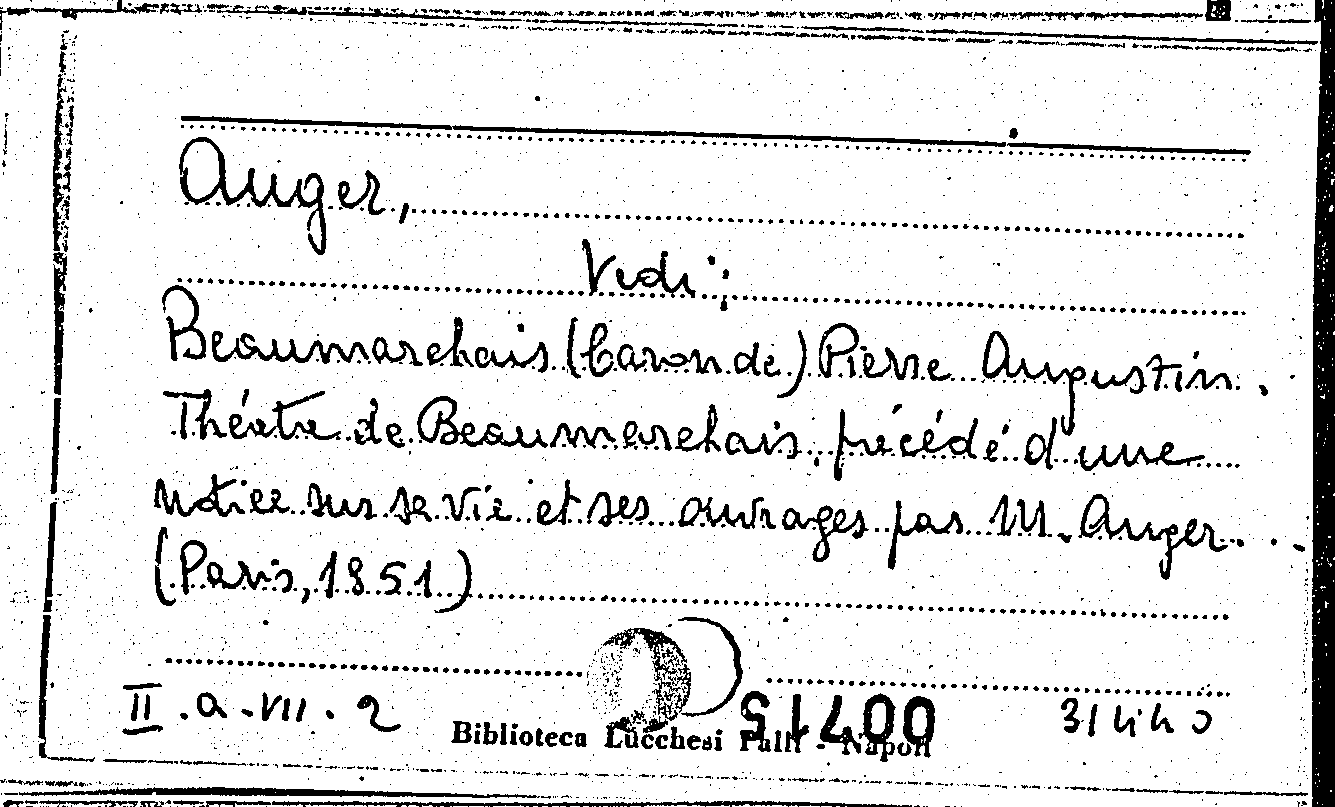 Auger,
Vedi:
Beaumarchais (Caron de) Pierre Augustin.
Théatre de Beaumarchais, précédé d'une
notice sur sa vie et ses ouvrages par M. Auger...
(Paris, 1851)
II.a.VII.2
Biblioteca Lucchesi Palli - Napoli